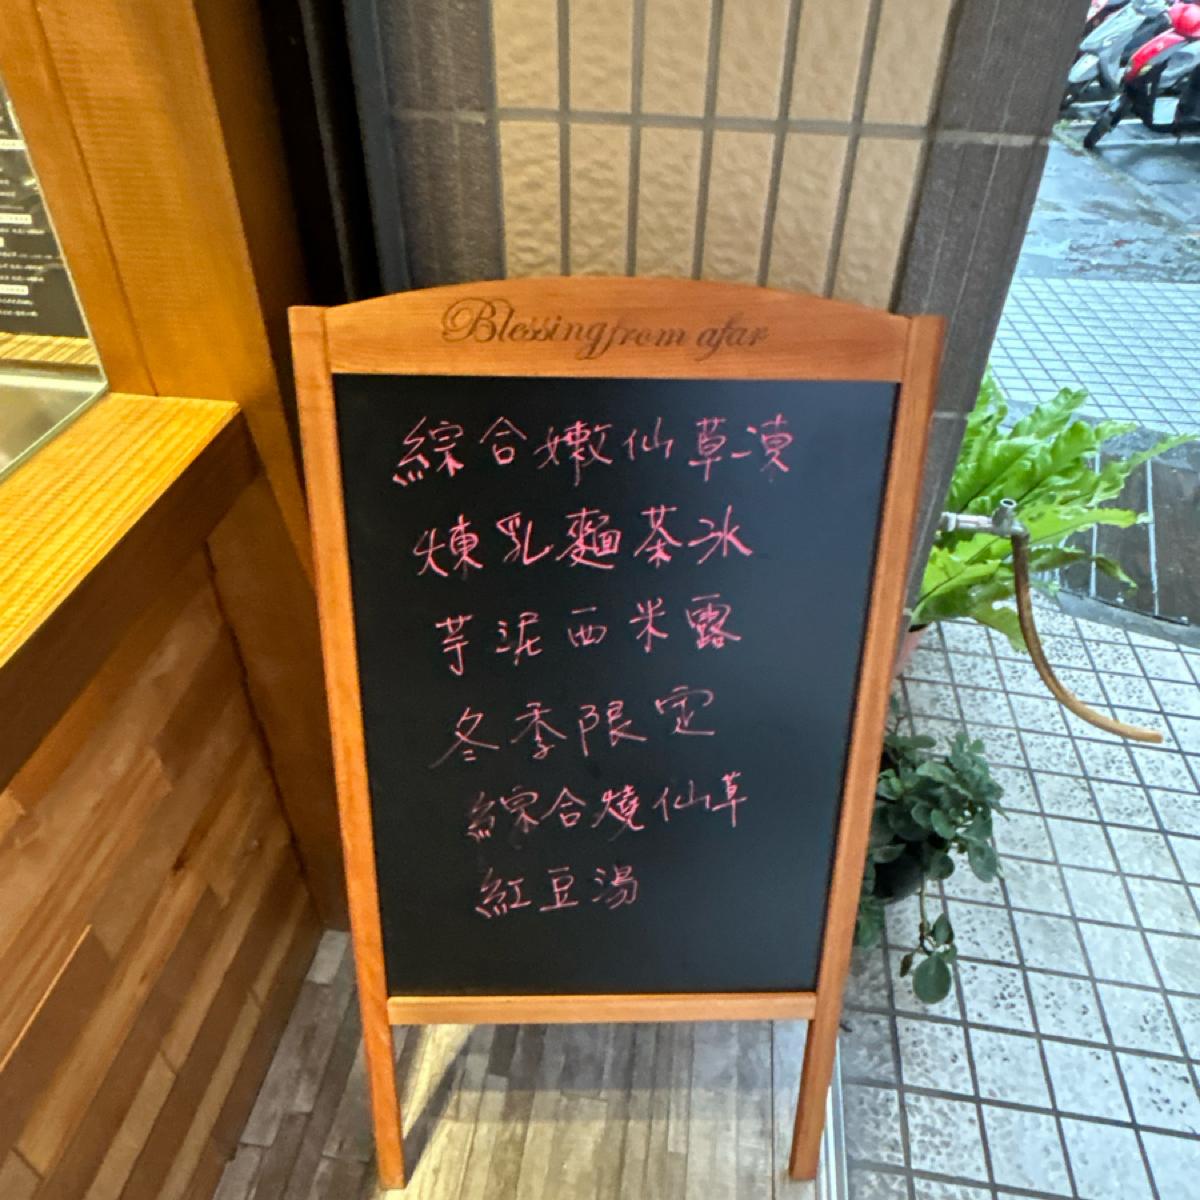 Blessing from afar
綜合嫩仙草凍
煉乳麵茶冰
芋泥西米露
冬季限定
綜合燒仙草
紅豆湯